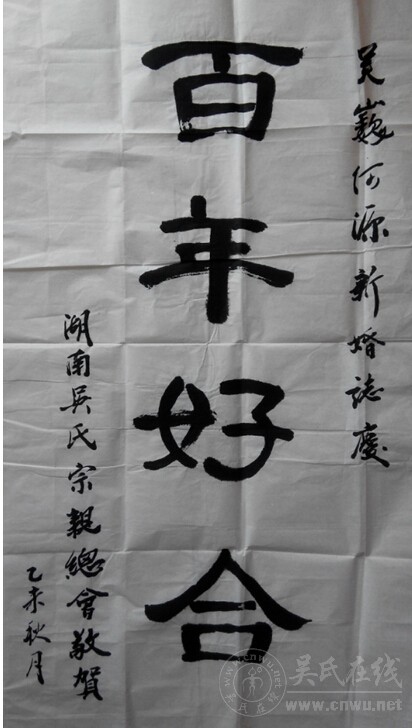 吴巍何源新婚誌慶
百年好合
湖南吴氏宗親總會敬賀
乙未秋月
吴氏在线
www.cnwu.net